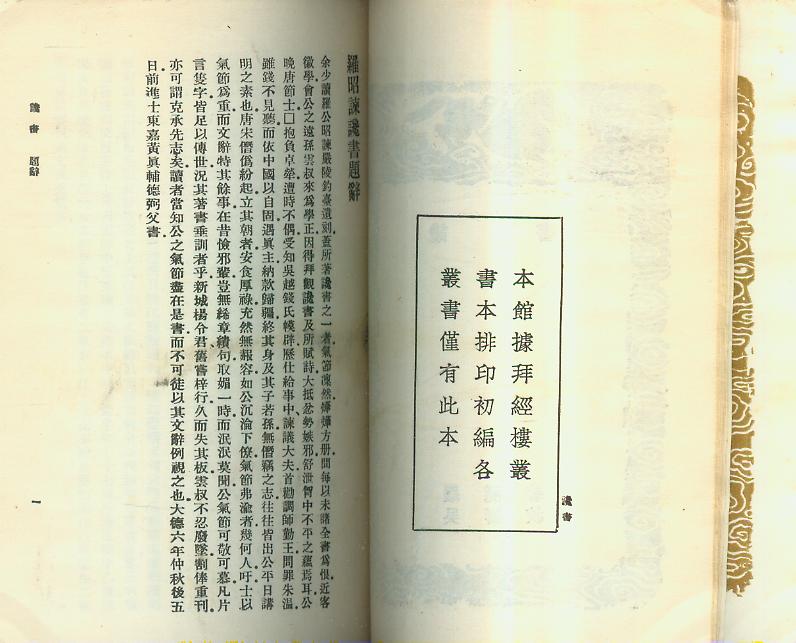 本館據拜經樓叢
書本排印初編各
叢書僅有此本
讒書
羅昭諫讒書題辭
余少讀羅公昭諫嚴陵釣臺遺刻蓋所著讒書之一者氣節凜然燁燁方册間每以未諸全書爲恨近客
徽學會公之遠孫雲叔來爲學正因得拜觀讒書及所賦詩大抵忿勢嫉邪舒泄胷中不平之蘊焉耳公
晚唐節士□抱負卓犖遭時不偶受知吳越錢氏幙辟歷仕給事中諫議大夫首勸調師勤王問罪朱溫
雖錢不見聽而依中國以自固遇眞主納款歸疆終其身及其子若孫無僭竊之志往往皆出公平日講
明之素也唐宋僭僞紛起立其朝者安食厚祿充然無赧容如公沉淪下僚氣節弗渝者幾何人吁士以
氣節爲重而文辭特其餘事在昔憸邪輩豈無絺章繢句取媚一時而泯泯莫聞公氣節可敬可慕凡片
言隻字皆足以傳世況其著書垂訓者乎新城楊令君舊嘗梓行久而失其板雲叔不忍廢墜割俸重刊
亦可謂克承先志矣讀者當知公之氣節盡在是書而不可徒以其文辭例視之也大德六年仲秋後五
日前進士東嘉黃眞輔德弼父書
讒書 題辭
一